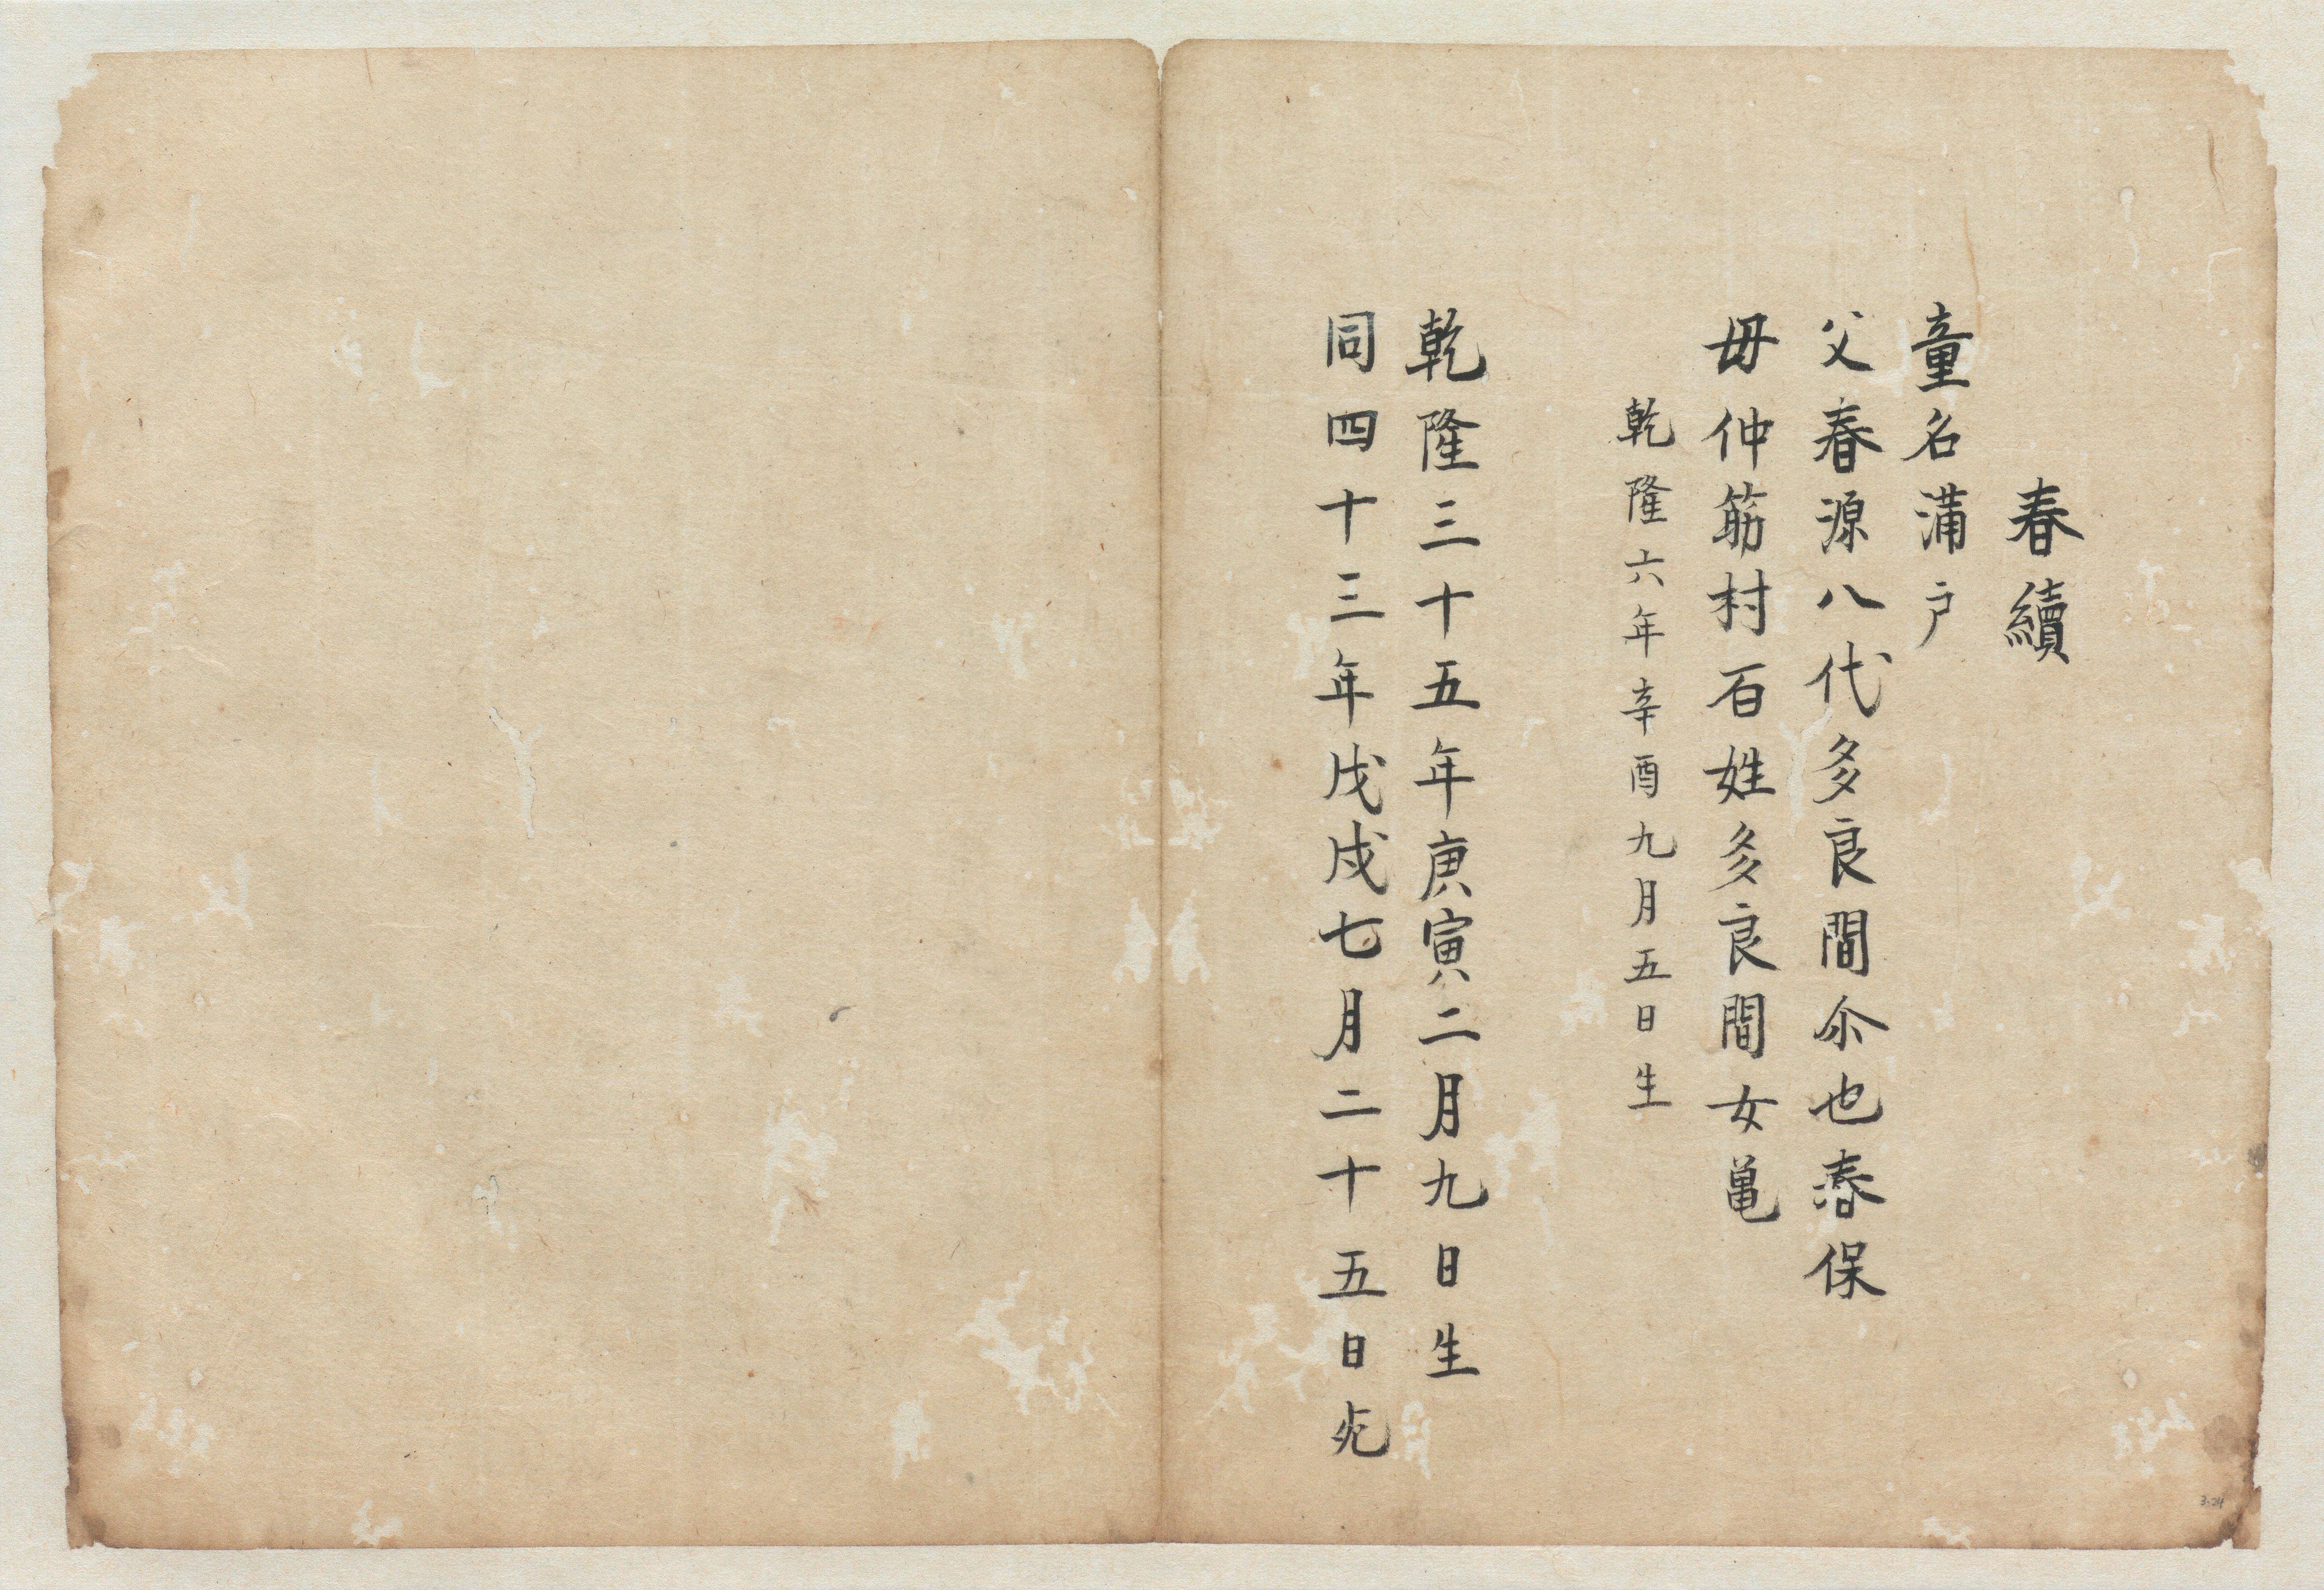 春續
童名蒲戸
父春源八代多良間尒也春保
母仲筋村百姓多良間女亀
乾隆六年辛酉九月五日生
乾隆三十五年庚寅二月九日生
同四十三年戊戌七月二十五日死
3.24